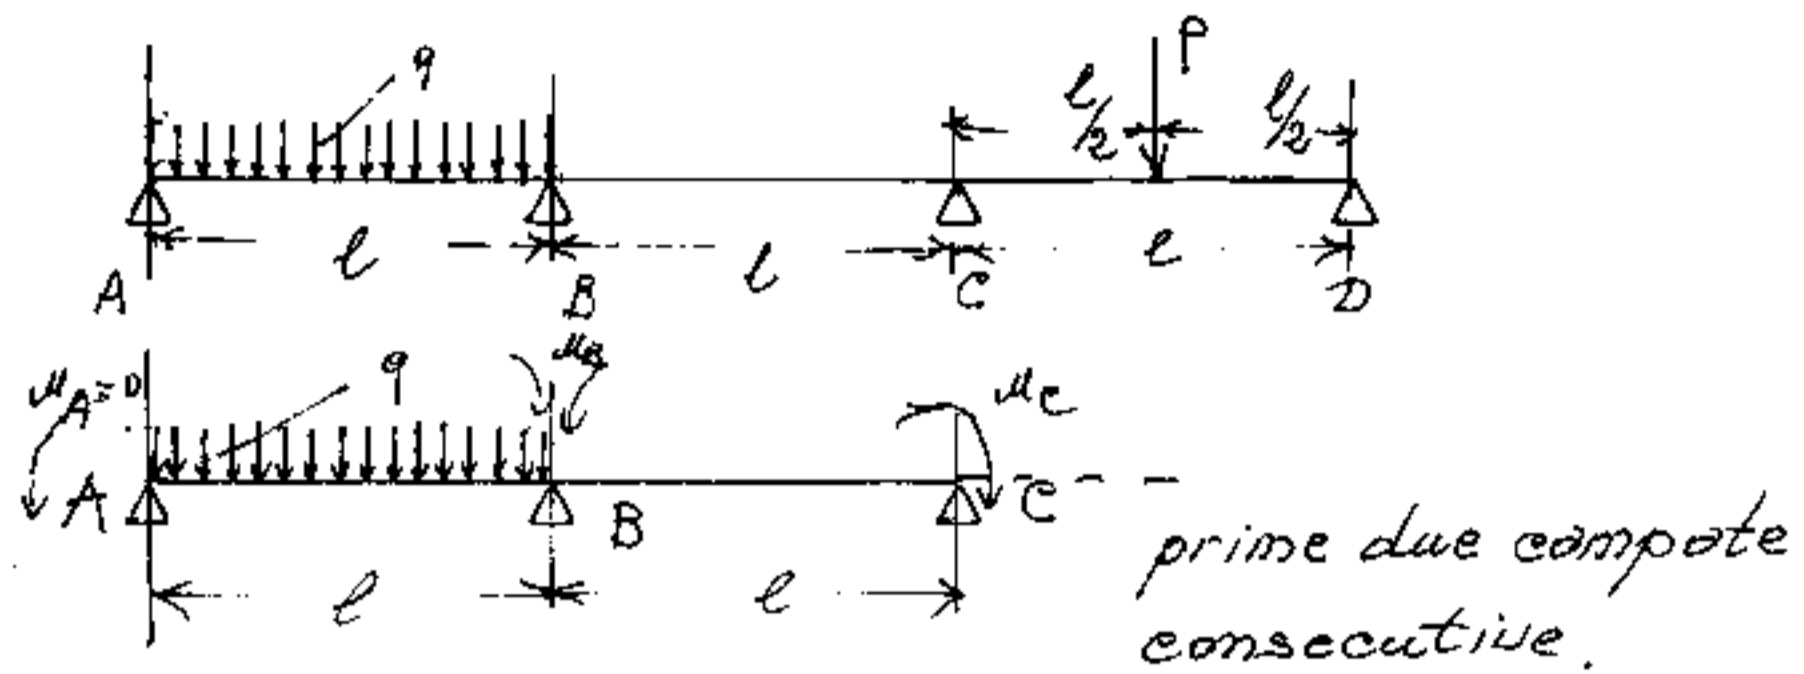 P
q
l/2 l/2
l l l
A B C D
M_A=0 q M_B M_C
A B C
l l
prime due campate
consecutive.